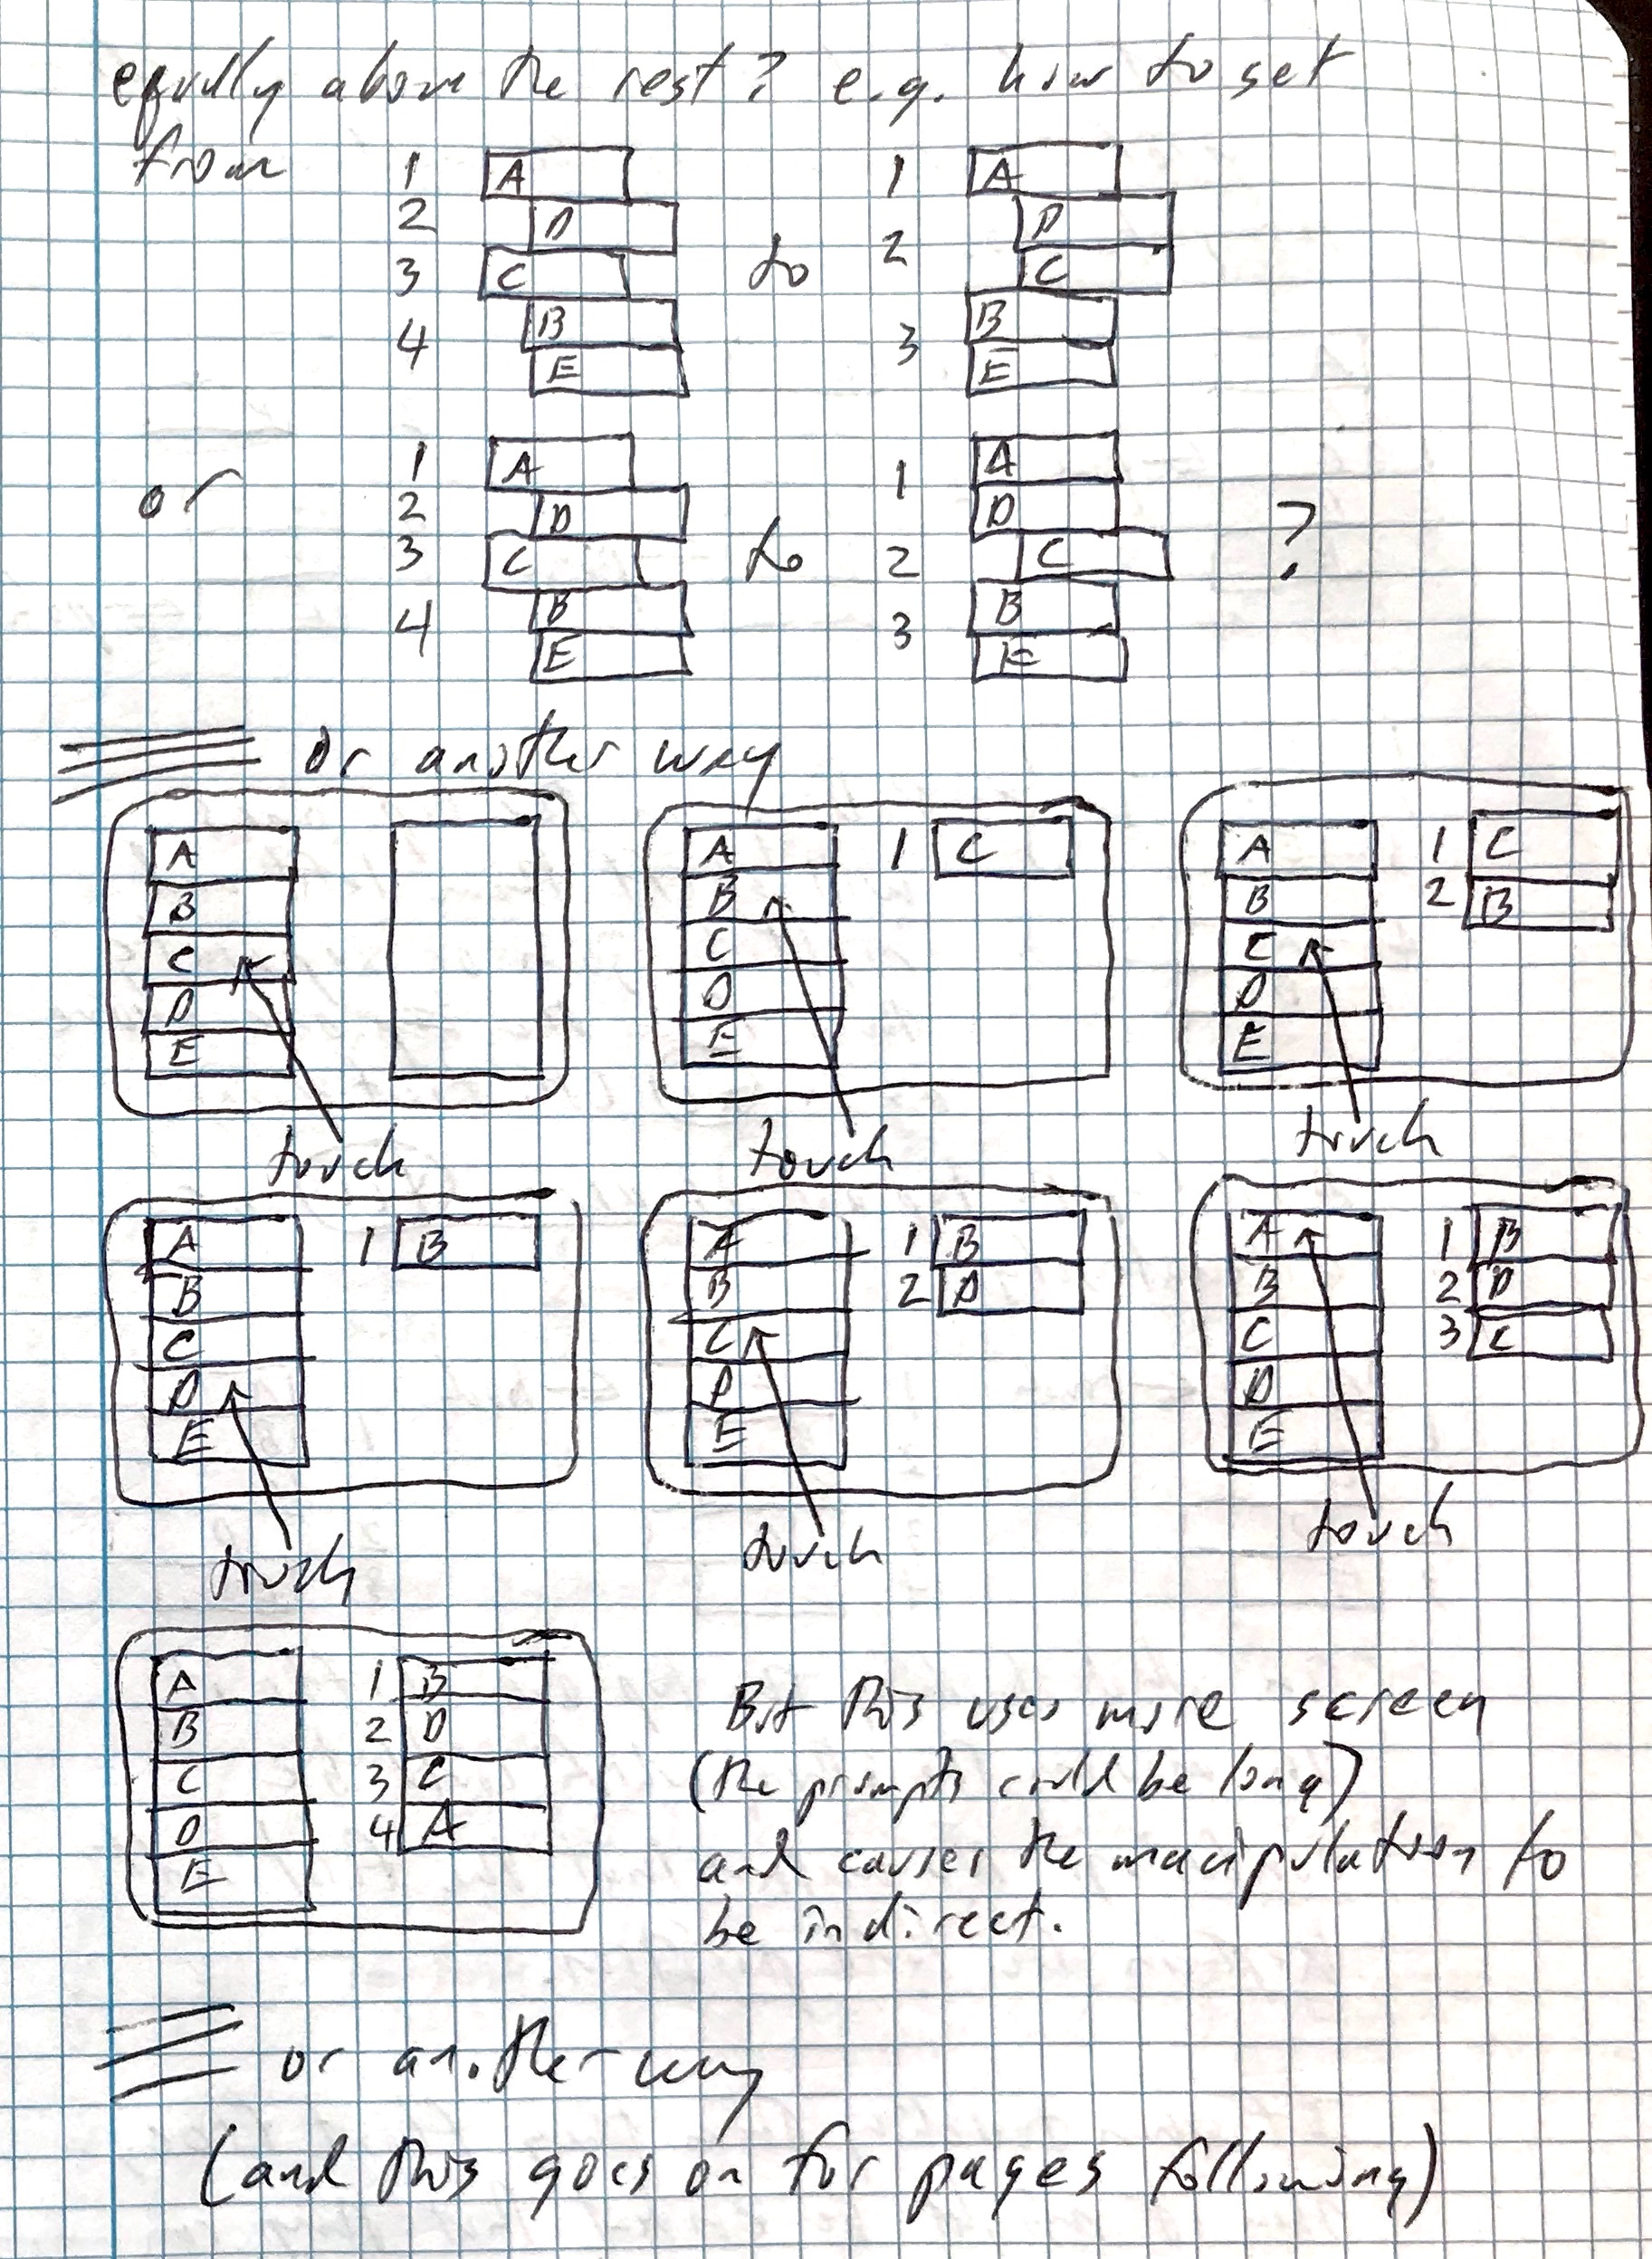 equally above the rest? e.g. how to get
from 1 A 1 A
2 D D
to 2
3 C C
4 B 3 B
E E
or 1 A 1 A
2 D D
3 C to 2 C ?
4 B 3 B
E E
or another way
A
B
C
D
E
touch
A 1 C
B
C
D
E
touch
A 1 C
B 2 B
C
D
E
touch
A 1 B
B
C
D
E
touch
A 1 B
B 2 D
C
D
E
touch
A 1 B
B 2 D
C 3 C
D
E
touch
A 1 B
B 2 D
C 3 C
D 4 A
E
But this uses more screen
(the prompts could be long)
and causes the manipulation to
be indirect.
or another way
(and this goes on for pages following)